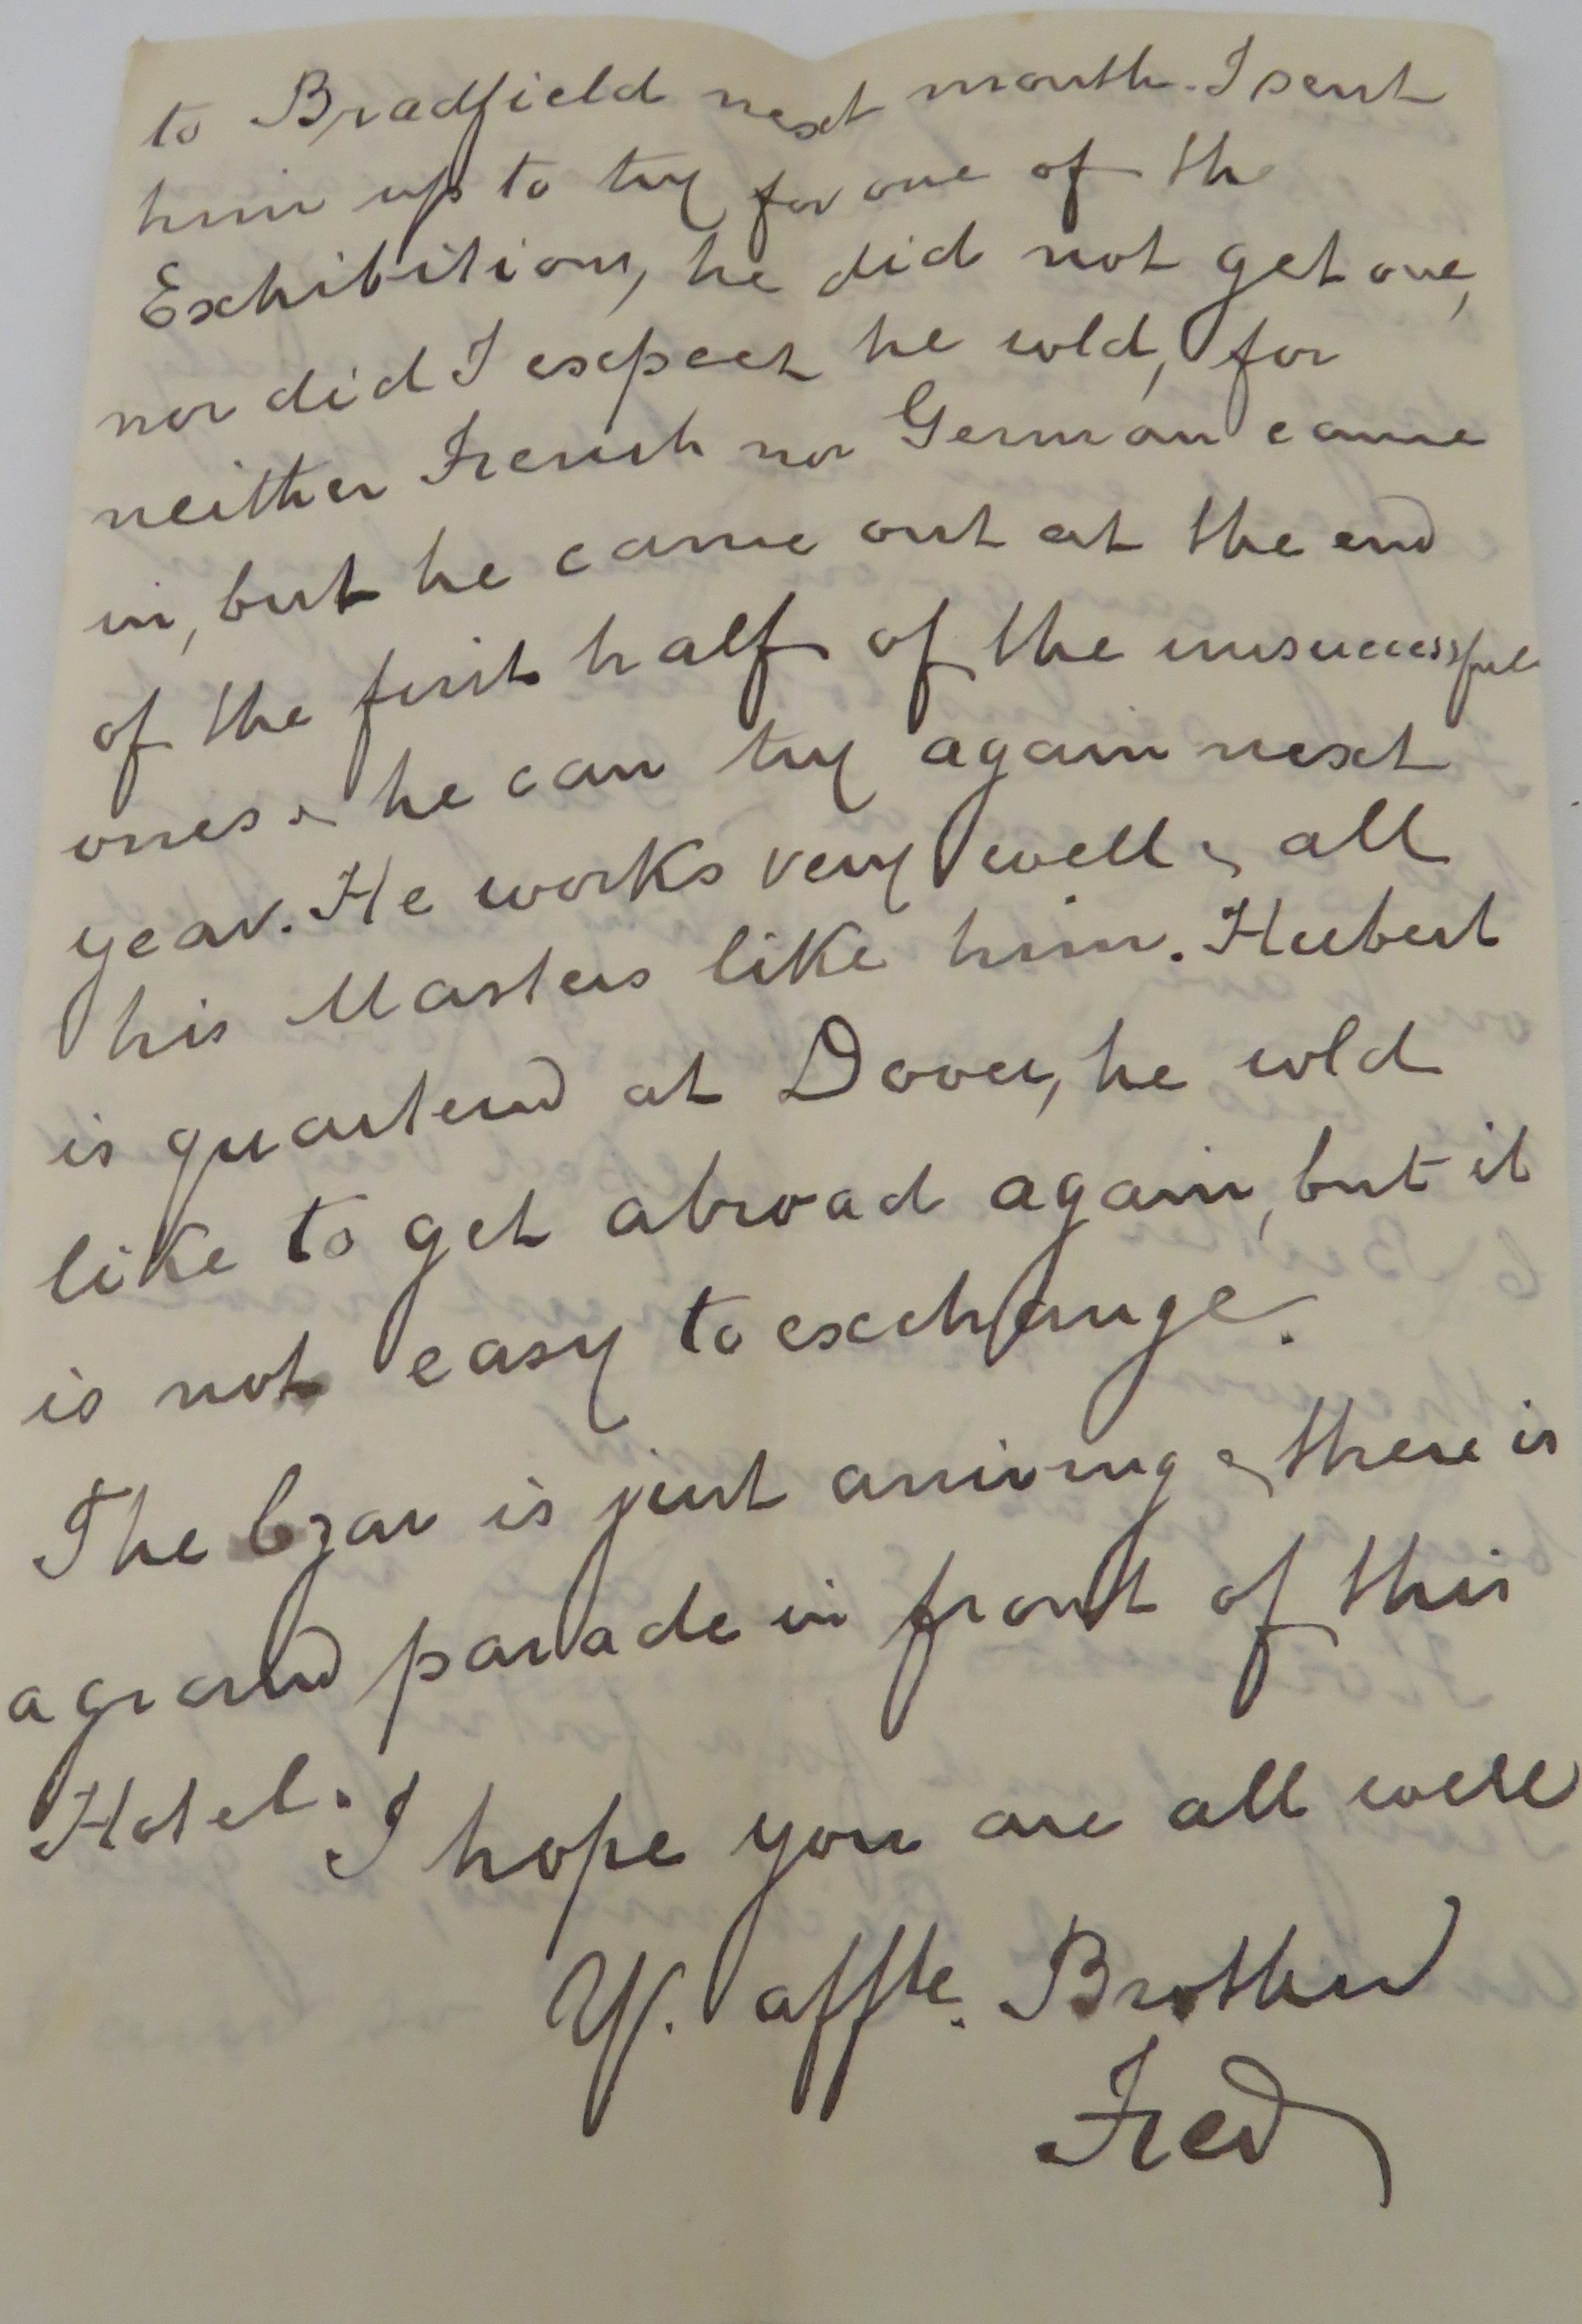 to Bradfield next month. I sent
him up to try for one of the
Exhibitions, he did not get one,
nor did I expect he wld, for
neither French nor German came
in, but he came out at the end
of the first half of the unsuccessful
ones & he can try again next
year. He works very well & all
his Masters like him. Hubert
is quartered at Dover, he wld
like to get abroad again, but it
is not easy to exchange.
The Czar is just arriving & there is
a grand parade in front of this
Hotel. I hope you are all well
Yr. affte. Brother
Fred